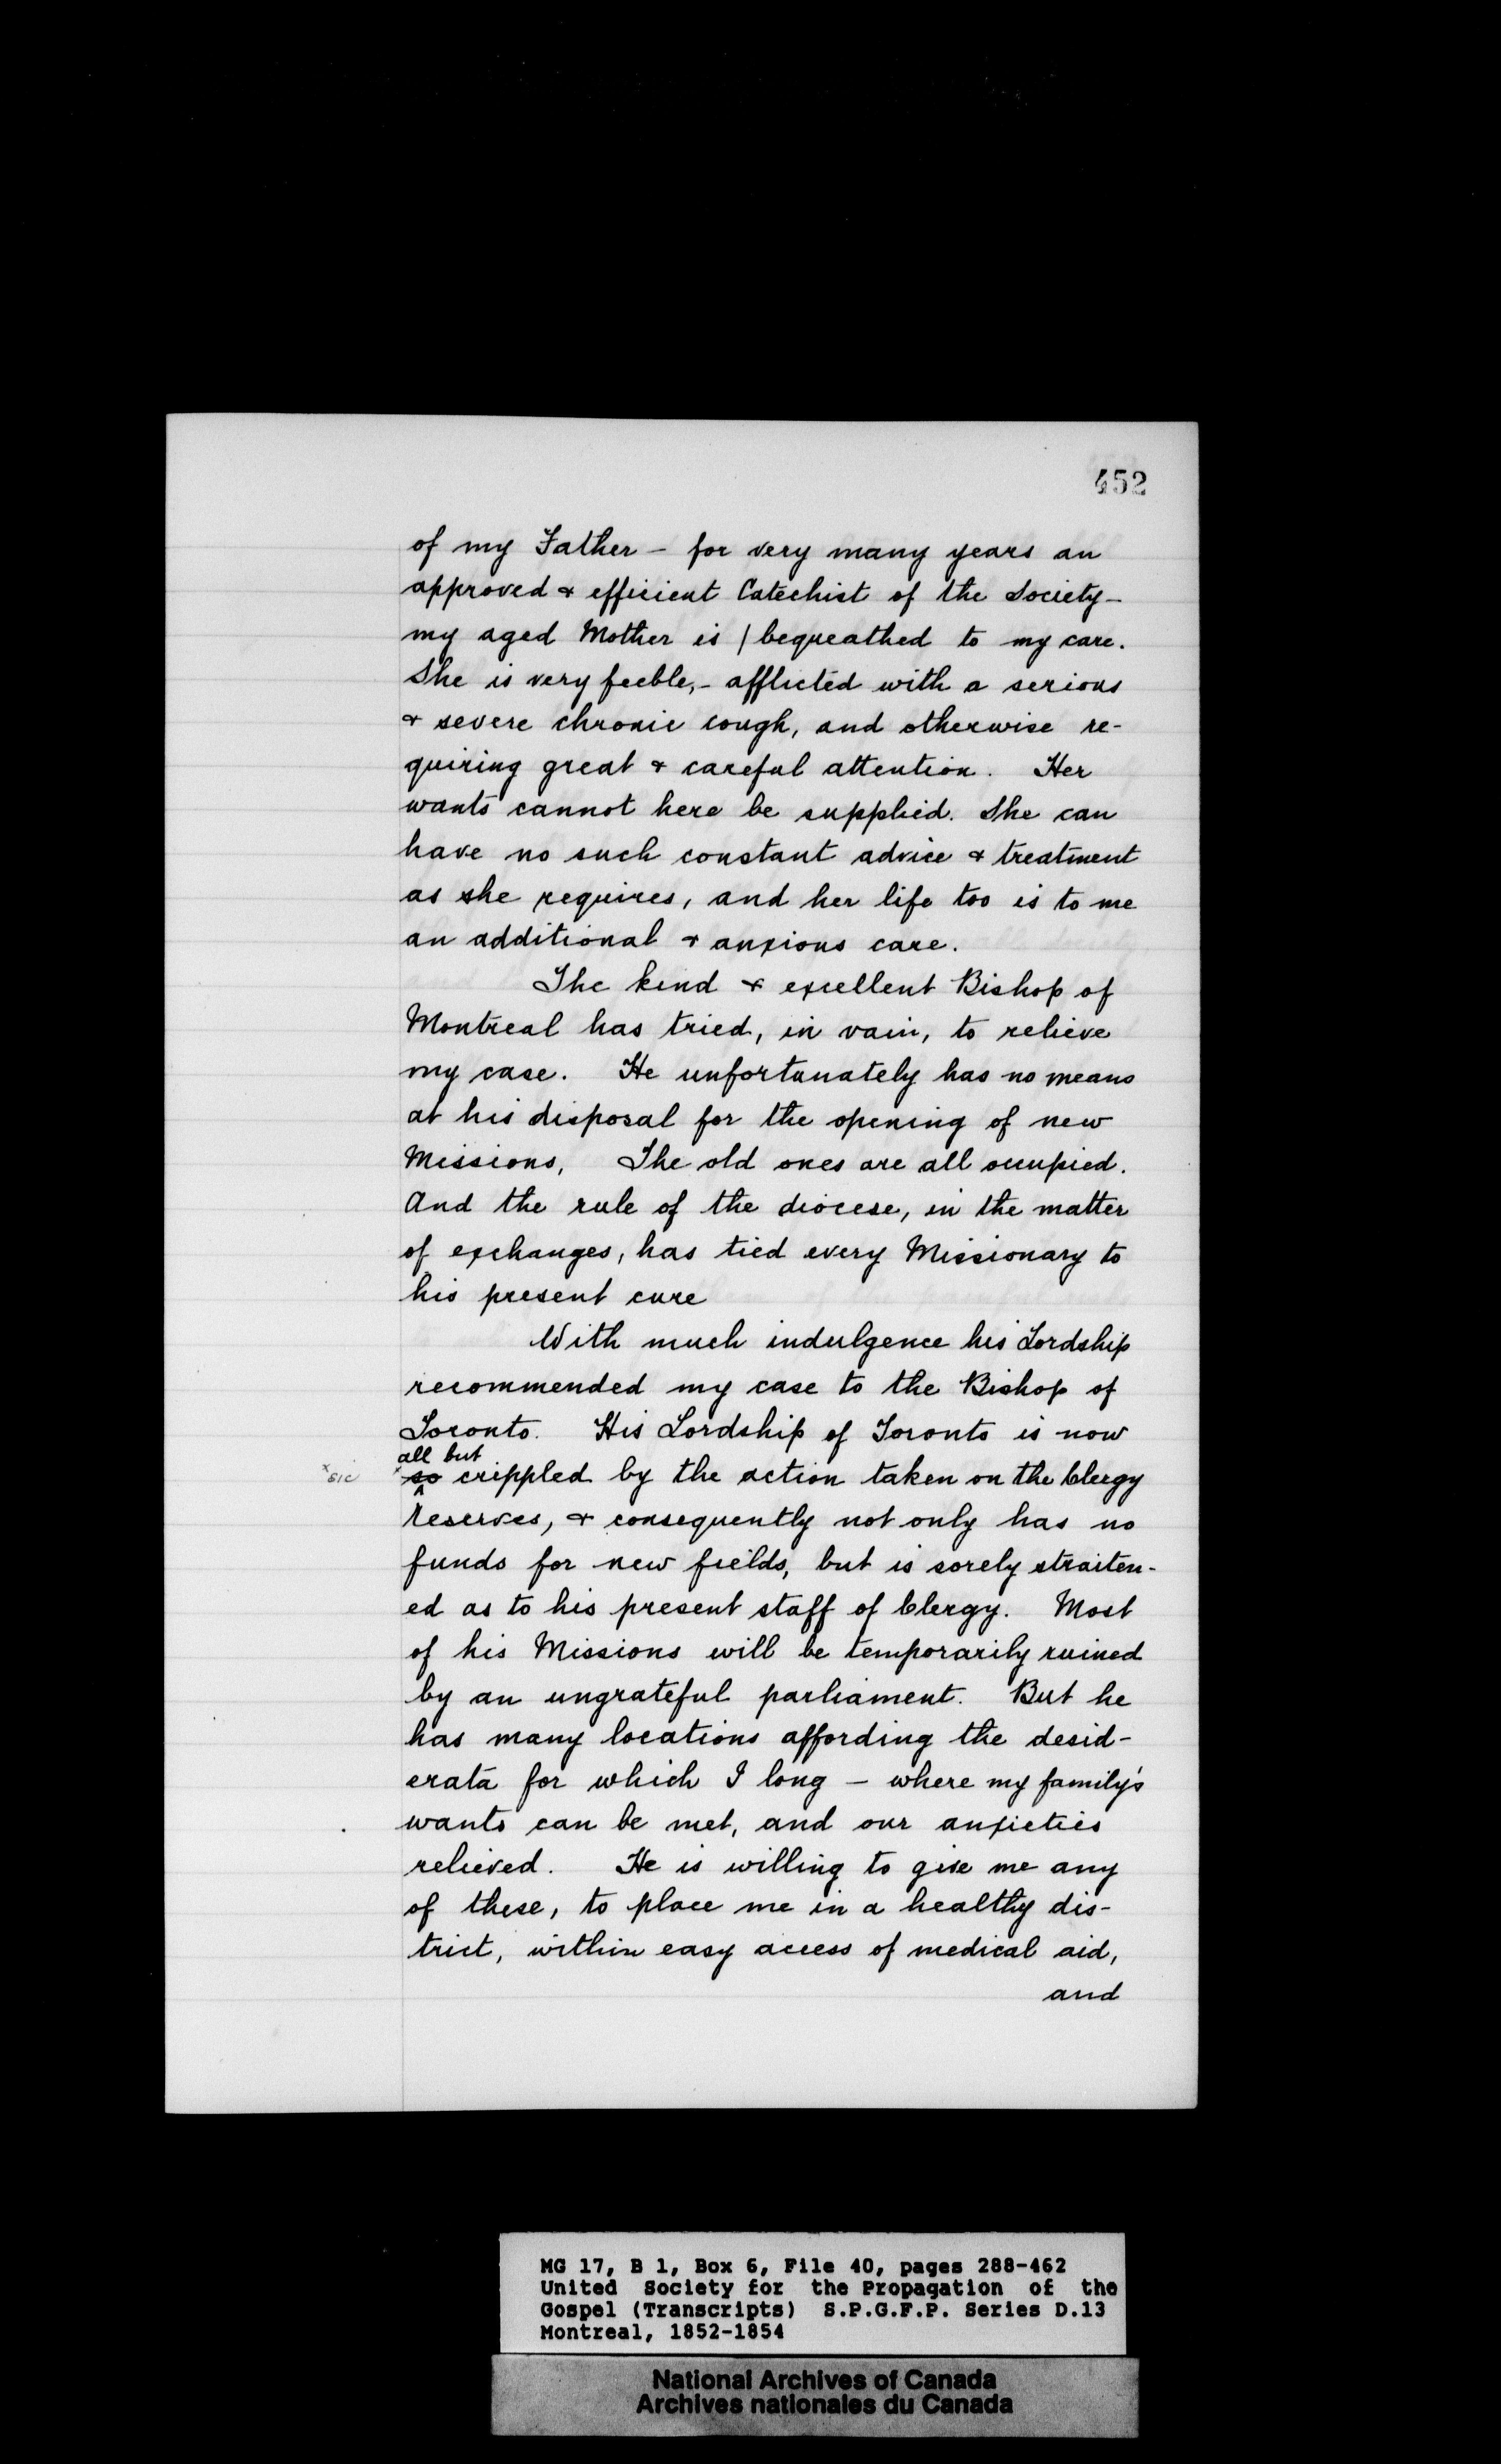 452
of my Father – for very many years an
approved & efficient Catechist of the Society –
my aged Mother is / bequeathed to my care.
She is very feeble, – afflicted with a serious
& severe chronic cough, and otherwise re-
quiring great & careful attention. Her
wants cannot here be supplied. She can
have no such constant advice & treatment
as she requires, and her life too is to me
an additional & anxious care.
The kind & excellent Bishop of
Montreal has tried, in vain, to relieve
my case. He unfortunately has no means
at his disposal for the opening of new
Missions, The old ones are all occupied.
And the rule of the diocese, in the matter
of exchanges, has tied every Missionary to
his present cure
With much indulgence his Lordship
recommended my case to the Bishop of
Toronto. His Lordship of Toronto is now
all but
x sic x so crippled by the action taken on the Clergy
Reserves, & consequently not only has no
funds for new fields, but is sorely straiten-
ed as to his present staff of Clergy. Most
of his Missions will be temporarily ruined
by an ungrateful parliament. But he
has many locations affording the desid-
erata for which I long – where my family's
wants can be met, and our anxieties
relieved. He is willing to give me any
of these, to place me in a healthy dis-
trict, within easy access of medical aid,
and
MG 17, B 1, Box 6, File 40, pages 288-462
United Society for the Propagation of the
Gospel (Transcripts) S.P.G.F.P. Series D.13
Montreal, 1852-1854
National Archives of Canada
Archives nationales du Canada